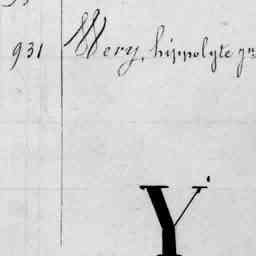 931 Wery, hippolyte
Y